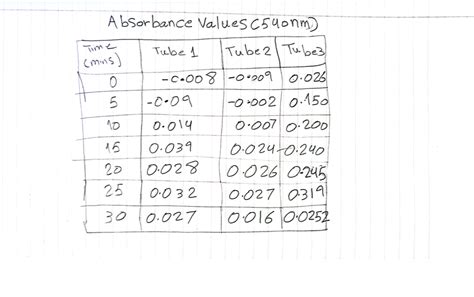 Absorbance Values (540nm)
Time (mins) Tube 1 Tube 2 Tube3
0 -0.008 -0.009 0.026
5 -0.09 -0.002 0.150
10 0.014 0.007 0.200
15 0.039 0.024 -0.240
20 0.028 0.026 0.245
25 0.032 0.027 0.319
30 0.027 0.016 0.0252